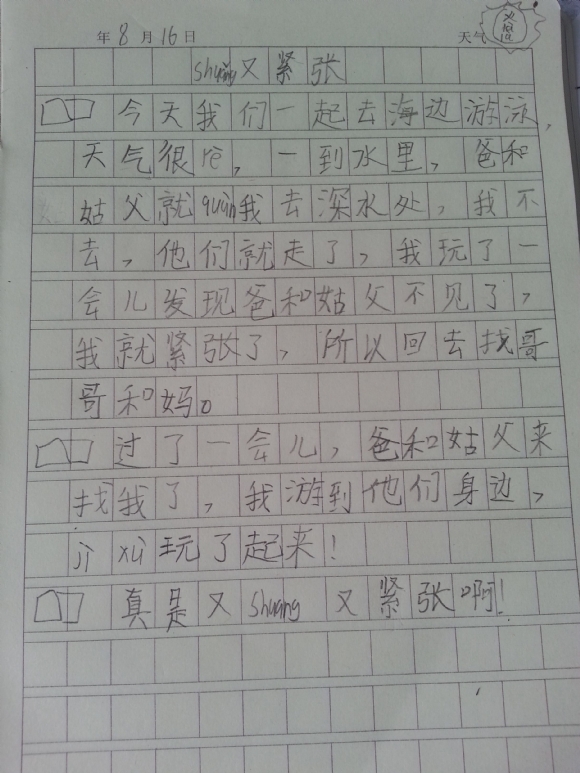 年8月16日 天气
shuǎng又紧张
今天我们一起去海边游泳，
天气很rè，一到水里，爸和
姑父就quàn我去深水处，我不
去，他们就走了，我玩了一
会儿发现爸和姑父不见了，
我就紧张了，所以回去找哥
哥和妈。
过了一会儿，爸和姑父来
找我了，我游到他们身边，
jì xù玩了起来！
真是又shuǎng又紧张啊！